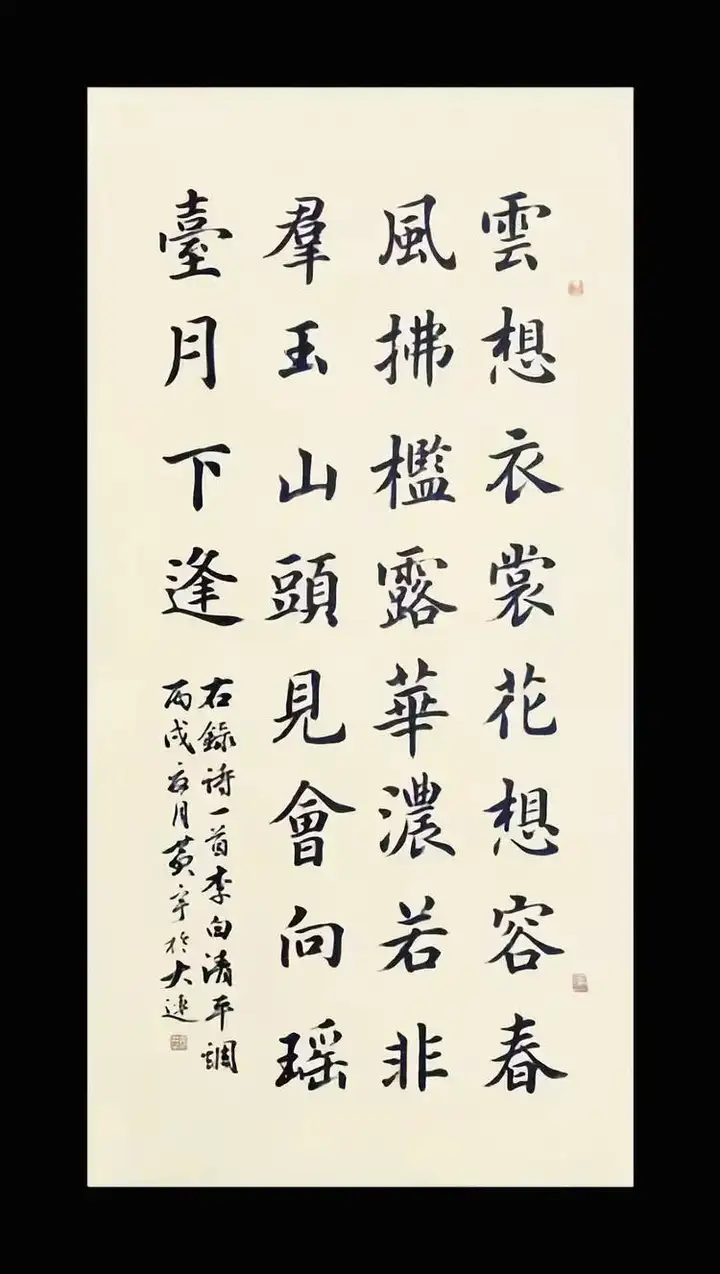 雲想衣裳花想容春
風拂檻露華濃若非
羣玉山頭見會向瑶
臺月下逢
右錄诗一首李白清平調
丙戌年月黄宇於大连